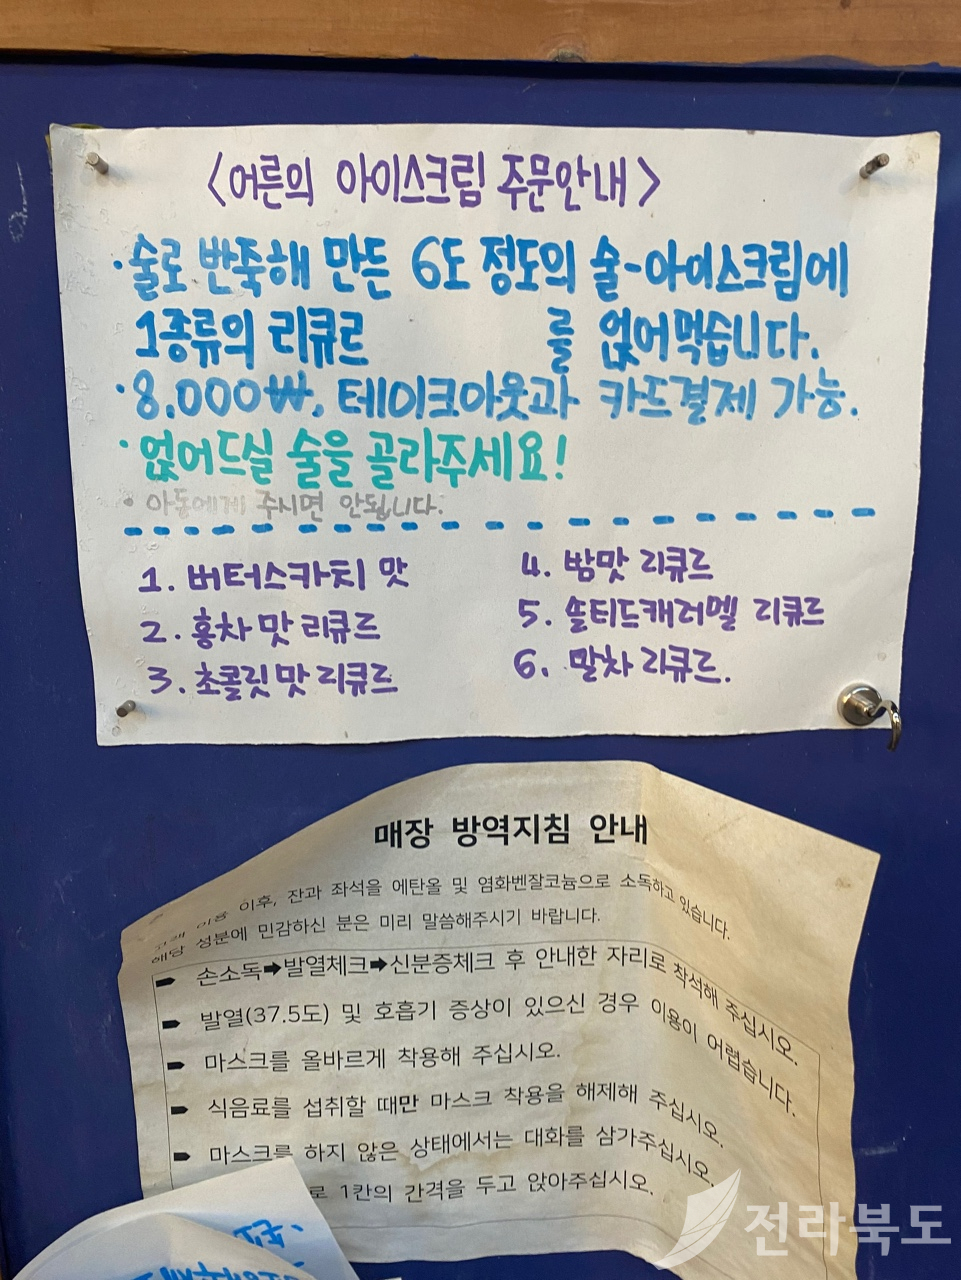 <어른의 아이스크림 주문안내>
· 술로 반죽해 만든 6도 정도의 술-아이스크림에
1종류의 리큐르 를 얹어먹습니다.
· 8,000₩, 테이크아웃과 카드결제 가능.
· 얹어드실 술을 골라주세요!
· 아동에게 주시면 안됩니다.
1. 버터스카치 맛
2. 홍차 맛 리큐르
3. 초콜릿 맛 리큐르
4. 밤맛 리큐르
5. 솔티드캐러멜 리큐르
6. 말차 리큐르.
매장 방역지침 안내
고객 이용 이후, 잔과 좌석을 에탄올 및 염화벤잘코늄으로 소독하고 있습니다.
해당 성분에 민감하신 분은 미리 말씀해주시기 바랍니다.
손소독➡발열체크➡신분증체크 후 안내한 자리로 착석해 주십시오.
발열(37.5도) 및 호흡기 증상이 있으신 경우 이용이 어렵습니다.
마스크를 올바르게 착용해 주십시오.
식음료를 섭취할 때만 마스크 착용을 해제해 주십시오.
마스크를 하지 않은 상태에서는 대화를 삼가주십시오.
로 1칸의 간격을 두고 앉아주십시오.
전라북도